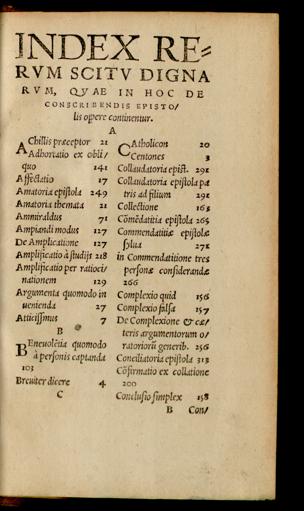 INDEX RE=
RVM SCITV DIGNA
RVM, QVAE IN HOC DE
CONSCRIBENDIS EPISTO/
lis opere continentur.
A
AChillis præceptor 21
Adhortatio ex obli/
quo 141
Affectatio 17
Amatoria epistola 249
Amatoria themata 21
Ammiraldus 71
Ampiandi modus 127
De Amplicatione 127
Amplificatio à studijs 218
Amplificatio per ratioci/
nationem 129
Argumenta quomodo in
uenienda 27
Atticissmus 7
B
BEneuolẽtia quomodo
à personis captanda
103
Breuiter dicere 4
C
CAtholicon 20
Centones 3
Collaudatoria epist. 291
Collaudatoria epistola pa
tris ad filium 291
Collectione 163
Cõmẽdatitia epistola 265
Commendatitiæ epistolæ
sylua 271
in Commendatitione tres
personæ considerandæ
266
Complexio quid 156
Complexio falsa 157
De Complexione & cæ/
teris argumentorum o/
ratoriorũ generib. 256
Conciliatoria epistola 313
Cõfirmatio ex collatione
200
Conclusio simplex 158
B Con/